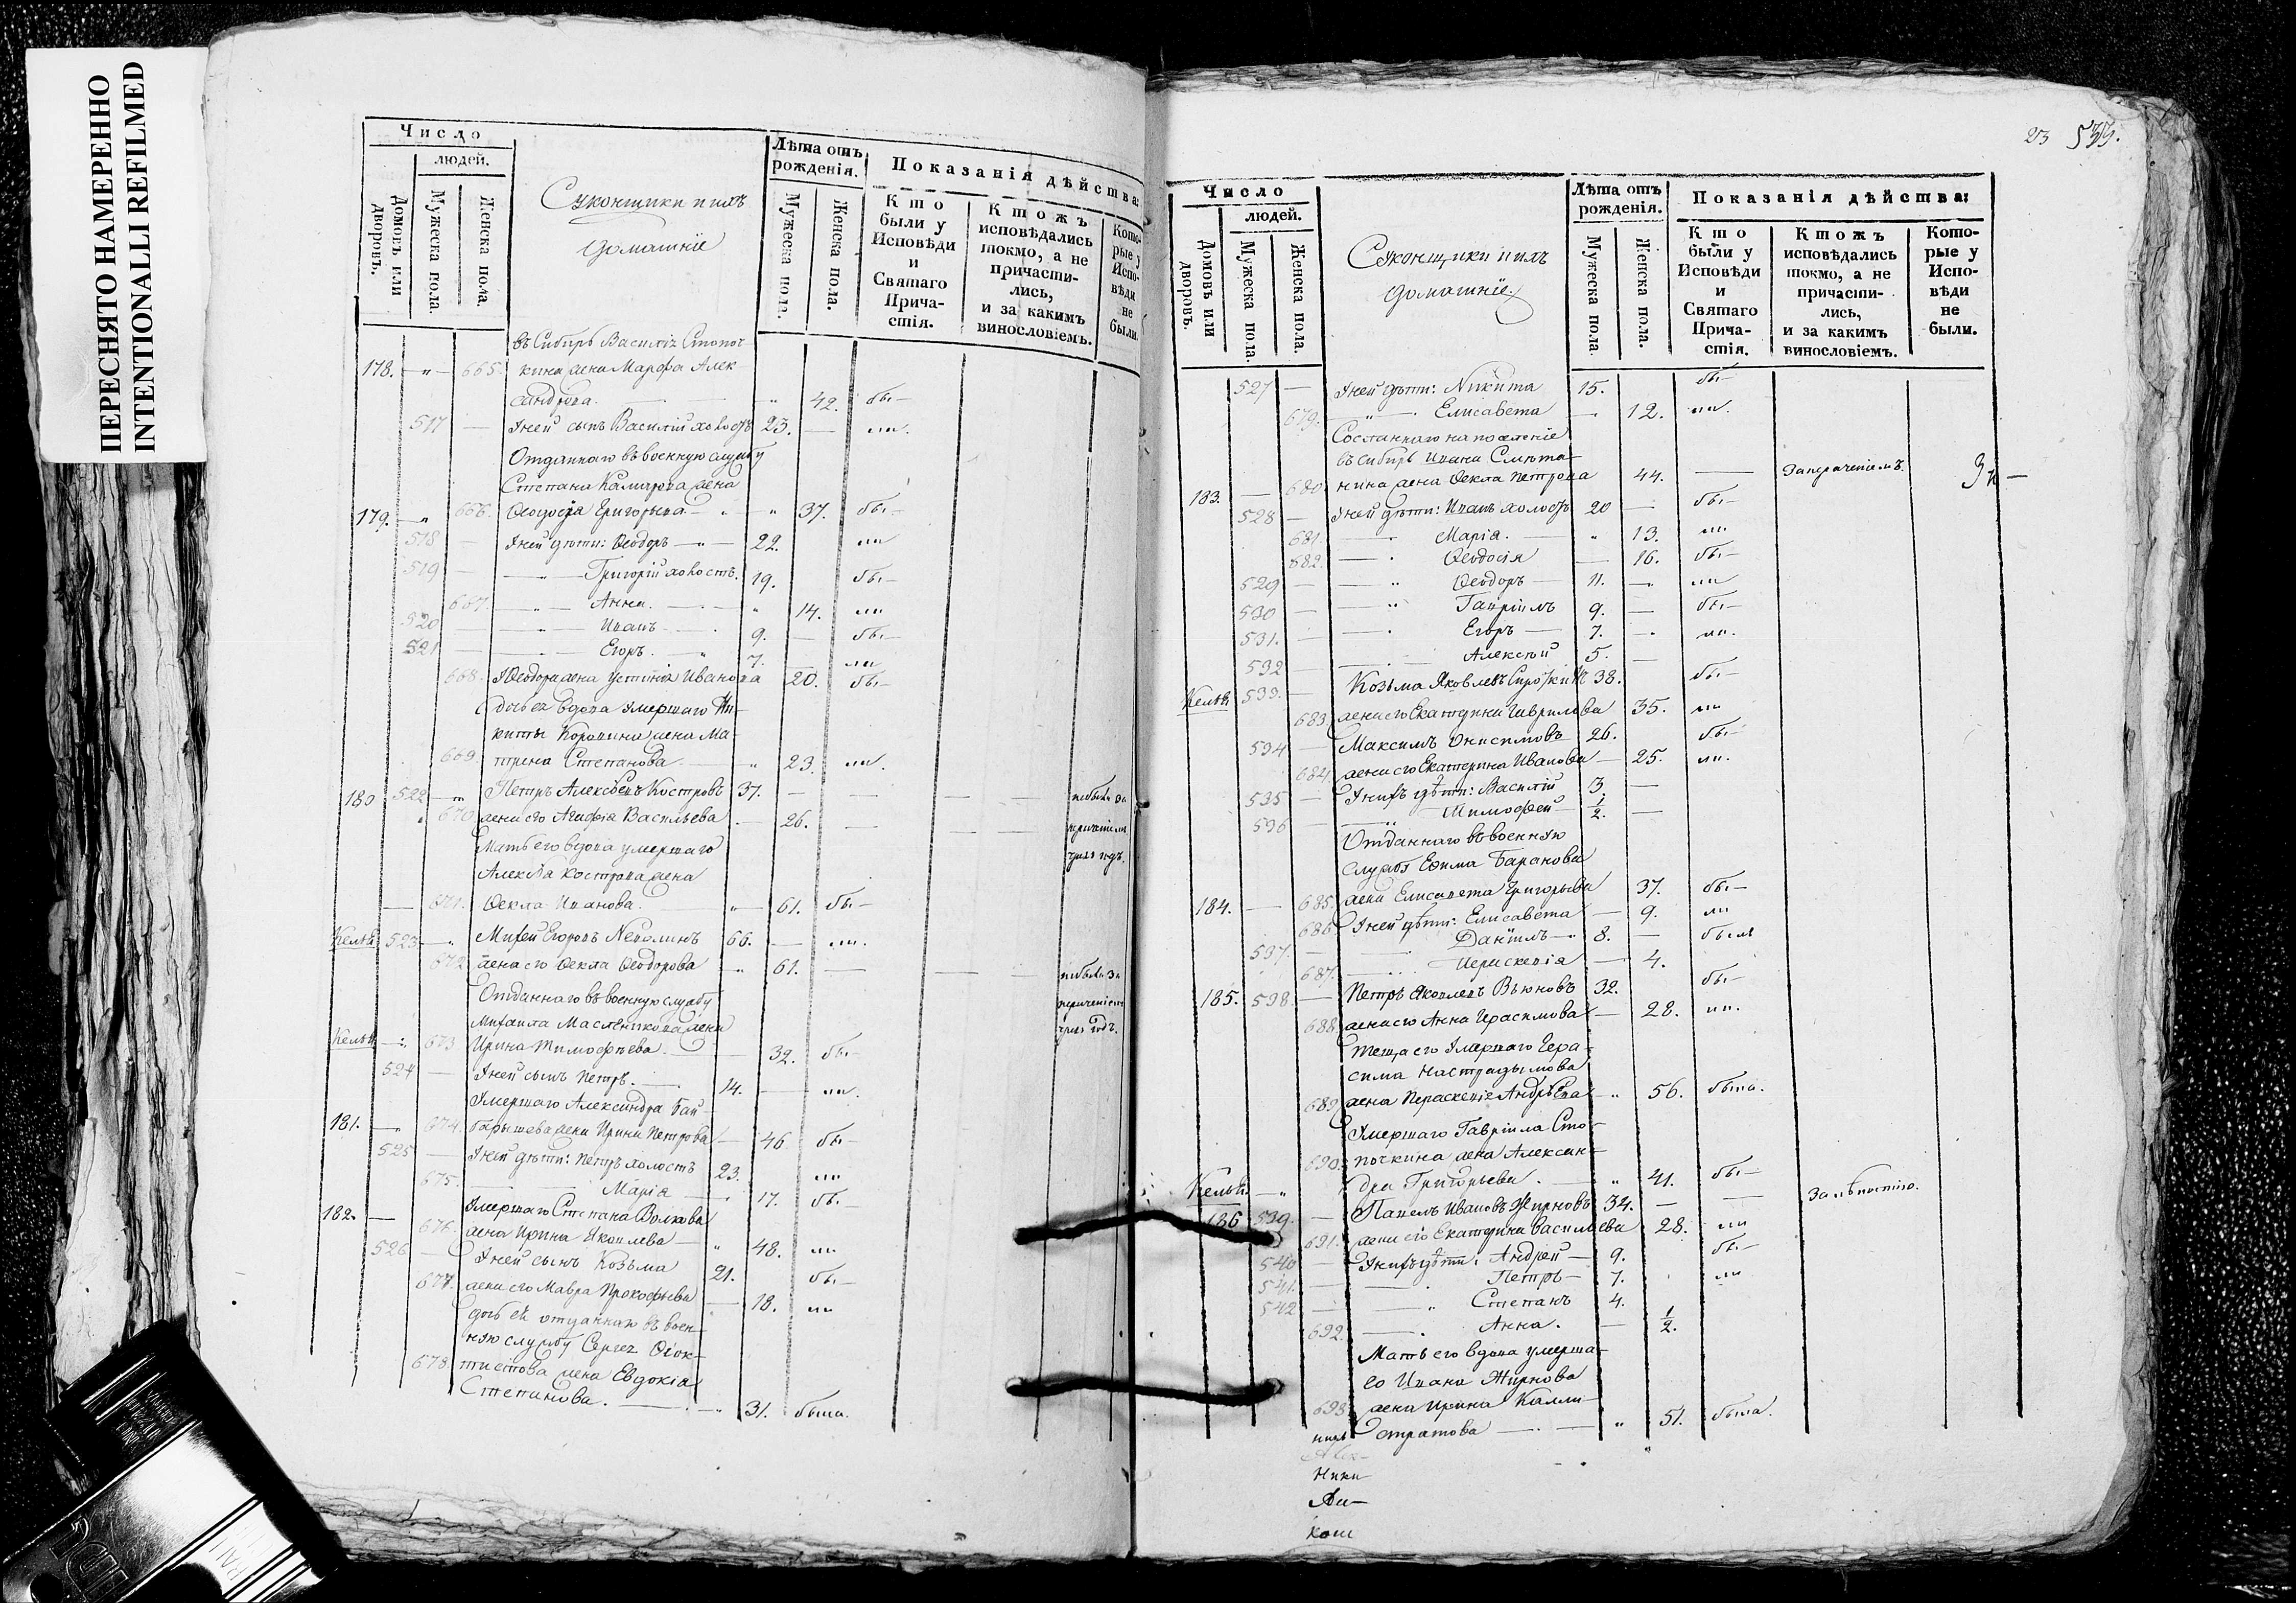 ПЕРЕСНЯТО НАМЕРЕННО
INTENTIONALLI REFILMED
Число
людей.
Домовъ или дворовъ.
Мужеска пола.
Женска пола.
Суконщики и ихъ
домашніе
Лѣта отъ рожденія.
Мужеска пола.
Женска пола.
Показанія дѣйства:
Кто были у Исповѣди и Святаго Прича-стія.
Ктожъ исповѣдались токмо, а не причасти-лись, и за какимъ винословіемъ.
Кото-рые у Испо-вѣди не были.
въ Сибирь Василія Стопоч
178. — „ — 665. кина жена Марѳа Алек
сандрова. — „ 42. бы—
517 — У ней сынъ Василій холостъ 23. — ли.
Отданнаго въ военную службу
Степана жена
179. — „ 666. Ѳеодосья Григорьева — „ 37. бы—
518 — У ней дѣти: Ѳеодоръ — „ — 22. ли
519 — — „ — Григорій холостъ. 19. бы—
667. — „ — Анна. — „ 14. ли
520 — — „ — Иванъ — 9. — бы—
521 — — „ — Егоръ. — „ 7. ли
668. У Ѳеодора жена Устинья Иванова 20. бы—
вдова умершаго Ни-
киты жена Ма-
669. трена Степанова. — „ 23. ли.
180 522 — „ Петръ Алексѣевъ Костровъ 37. — — — — небыли за
„ 670 жена его Агафія Васильева — 26. — — —
Мать его вдова умершаго
Алексѣя Кострова жена
— 671. Ѳекла Иванова. „ — 61. бы—
Келья 523 — „ Михей Егоровъ 66. — ли.
672 жена его Ѳекла Ѳеодорова — „ 61. — — — небыла за
Отданнаго въ военную службу
Михаила Масленикова жена
Келья — „ 673 Ирина Тимофѣева. — 32. бы—
524 — У ней сынъ Петръ. — 14. — ли.
Умершаго Александра Бай
181. — „ 674. барышева жена Ирина Петрова — 46 бы—
525 — У ней дѣти: Петръ холостъ 23. ли
675. — Марія — 17. бы—
Умершаго Степана Волкова
182. — 676. жена Ирина Яковлева — „ 48. ли
526 — У ней сынъ Козьма 21. бы—
677. жена его Мавра Прокофьева — 18. ли
дочь ей отданнаго въ воен-
ную службу Сергея Ѳіок-
678 тистова жена Евдокія
Степанова. — „ 31. была.
23 539.
Число
людей.
Домовъ или дворовъ.
Мужеска пола.
Женска пола.
Суконщики и ихъ
домашніе
Лѣта отъ рожденія.
Мужеска пола.
Женска пола.
Показанія дѣйства:
Кто были у Исповѣди и Святаго Прича-стія.
Ктожъ исповѣдались токмо, а не причасти-лись, и за какимъ винословіемъ.
Кото-рые у Испо-вѣди не были.
527 — У ней дѣти: Никита 15. бы—
679. — „ — Елисавета — 12. ли.
Сосланнаго на поселеніе
въ Сибирь Ивана Смѣта-
183. — 680 нина жена Ѳекла Петрова 44. —
528 — У ней дѣти: Иванъ холостъ 20 — бы—
681 — „ Марія. — „ 13. ли
682. — „ Ѳеодосія — 16. бы—
529 — — „ Ѳеодоръ — 11. — ли
530 — — „ Гавріилъ 9. — бы—
531. — — „ Егоръ — 7. — ли.
532 — „ Алексѣй 5. —
Келья 533. — Козьма Яковлевъ 38. бы—
683. жена его Екатерина Гаврилова 35. ли
534 — Максимъ Онисимовъ 26. бы—
684. жена его Екатерина Иванова — 25. ли.
535 — У нихъ дѣти: Василій 3. —
536 — „ Тимофей — 1/2. —
Отданнаго въ военную
службу Ефима Баранова
184. — 685. жена Елисавета Григорьева 37. бы—
686 У ней дѣти: Елисавета — 9. ли
537. — Даніилъ — „ 8. — былъ
687. — Перискевія — 4.
185. 538. — Петръ Яковлевъ Вьюновъ 32. бы—
688. жена его Анна Герасимова — 28. ли.
теща его умершаго Гера-
сима
689. жена Параскевіе Андрѣева — „ 56. была.
Умершаго Гавріила Сто-
690. почкина жена Алексан-
Келья. — „ дра Григорьева. — „ 41. бы—
186 539. — Павелъ Ивановъ Жирновъ 34. — — За лѣностію.
691. жена его Екатерина Васильева 28. ли
540 — У нихъ дѣти: Андрей — 9. бы—
541. — — Петръ — 7. ли
542 — „ Степанъ 4.
692. — „ Анна. — 1/2.
Мать его вдова умерша-
го Ивана Жирнова
693. жена Ирина Калли-
стратова — „ 51. была.